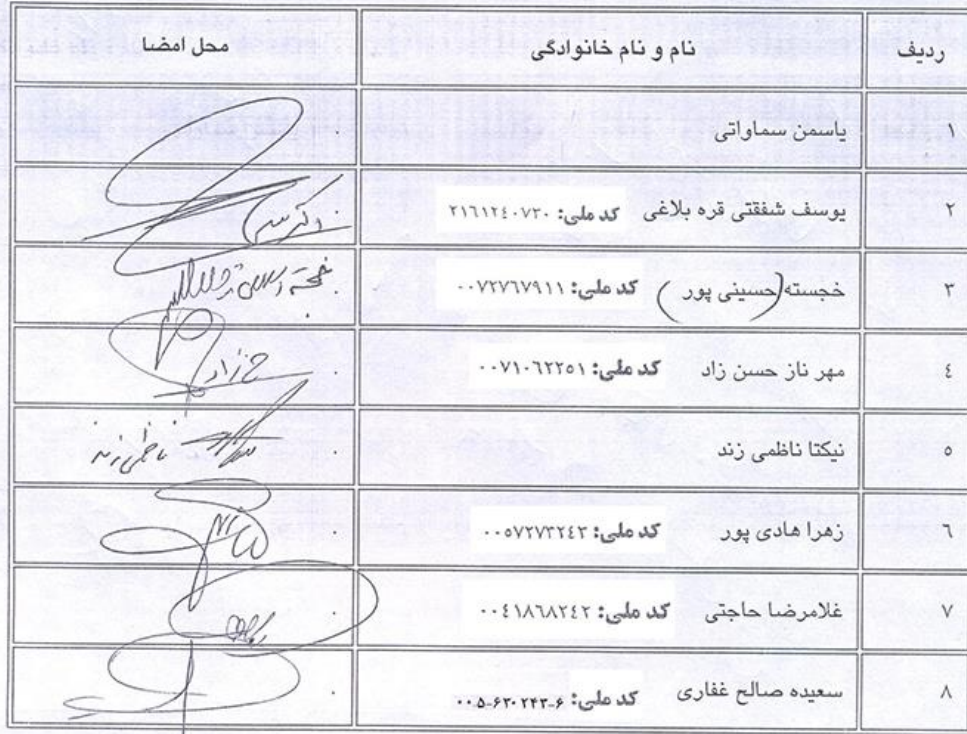 ردیف نام و نام خانوادگی محل امضا
۱ یاسمن سماواتی
۲ یوسف شفقتی قره بلاغی کد ملی: ۲۱۶۱۲٤۰۷۳۰
۳ خجسته (حسینی پور) کد ملی: ۰۰۷۲۷۶۷۹۱۱
٤ مهر ناز حسن زاد کد ملی: ۰۰۷۱۰۶۲۲۵۱
٥ نیکتا ناظمی زند ناظمی زند
٦ زهرا هادی پور کد ملی: ۰۰۵۷۲۷۲۲٤۳
۷ غلامرضا حاجتی کد ملی: ۰۰٤۱۸۶۸۲٤۲
۸ سعیده صالح غفاری کد ملی: ۰۰۵-۶۳۰۲۴۳-۶